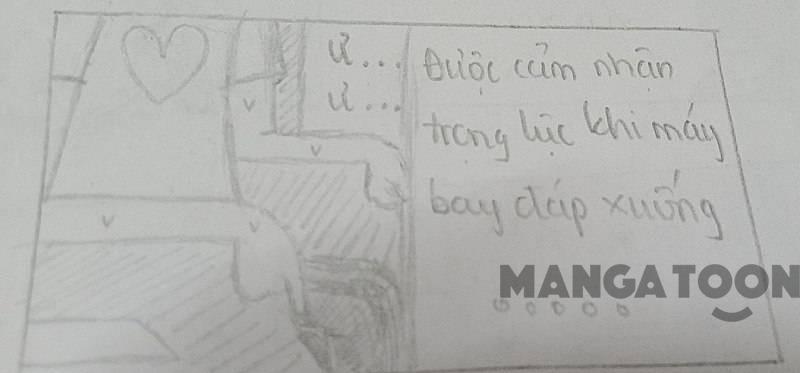 Ư...
Ư...
Được cảm nhận
trọng lực khi máy
bay đáp xuống
MANGATOON